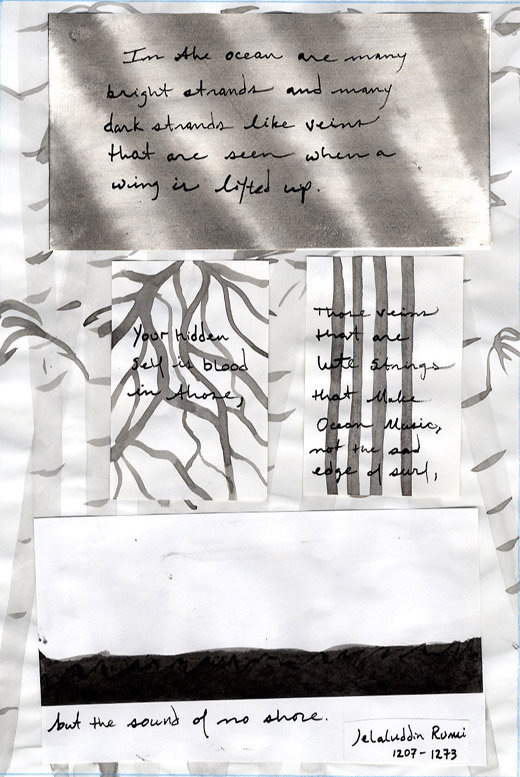 In the ocean are many
bright strands and many
dark strands like veins
that are seen when a
wing is lifted up.
Your Hidden
Self is blood
in those,
Those veins
that are
lute Strings
that Make
Ocean Music,
not the sad
edge of surf,
but the sound of no shore.
Jelaluddin Rumi
1207-1273